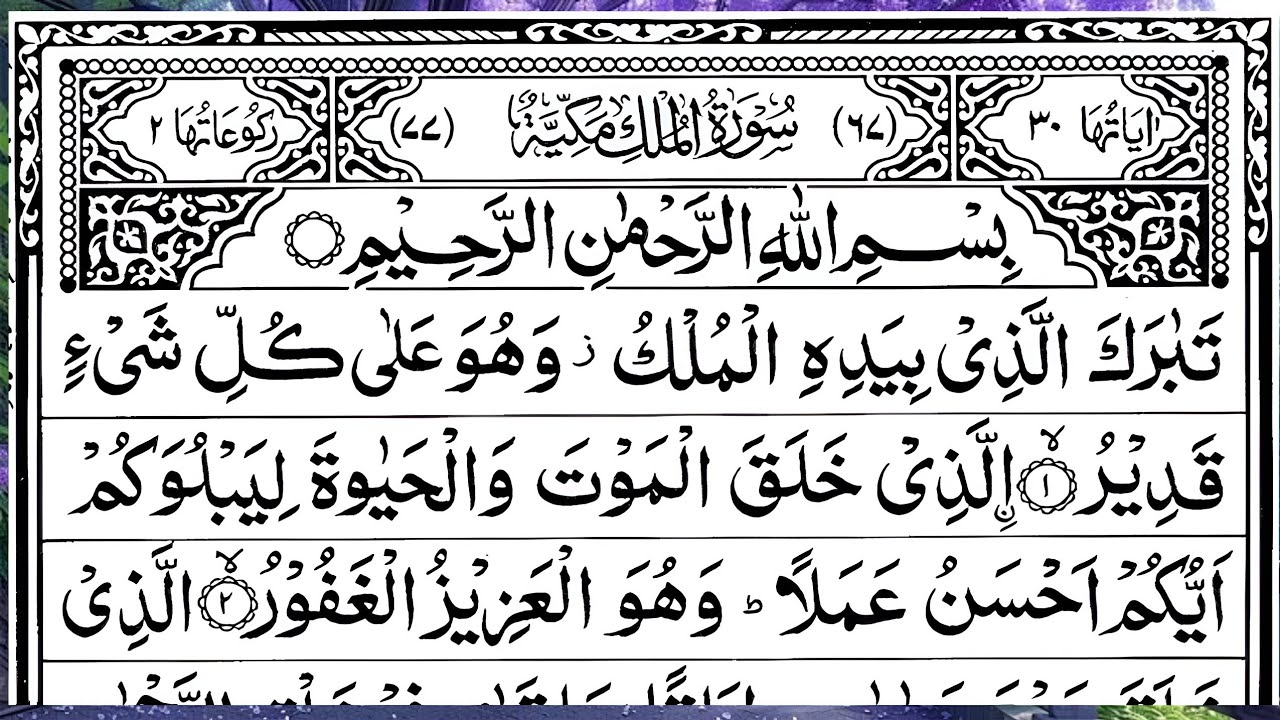 اٰيَاتُهَا ٣٠ (٦٧) سُوْرَةُ الْمُلْكِ مَكِّيَّةٌ (٧٧) رُكُوْعَاتُهَا ٢
بِسْمِ اللّٰهِ الرَّحْمٰنِ الرَّحِيْمِ
تَبٰرَكَ الَّذِىْ بِيَدِهِ الْمُلْكُ ز وَهُوَ عَلٰى كُلِّ شَىْءٍ
قَدِيْرُ ۙ ١ نِ الَّذِىْ خَلَقَ الْمَوْتَ وَالْحَيٰوةَ لِيَبْلُوَكُمْ
اَيُّكُمْ اَحْسَنُ عَمَلًا ؕ وَهُوَ الْعَزِيْزُ الْغَفُوْرُ ۙ ٢ الَّذِىْ